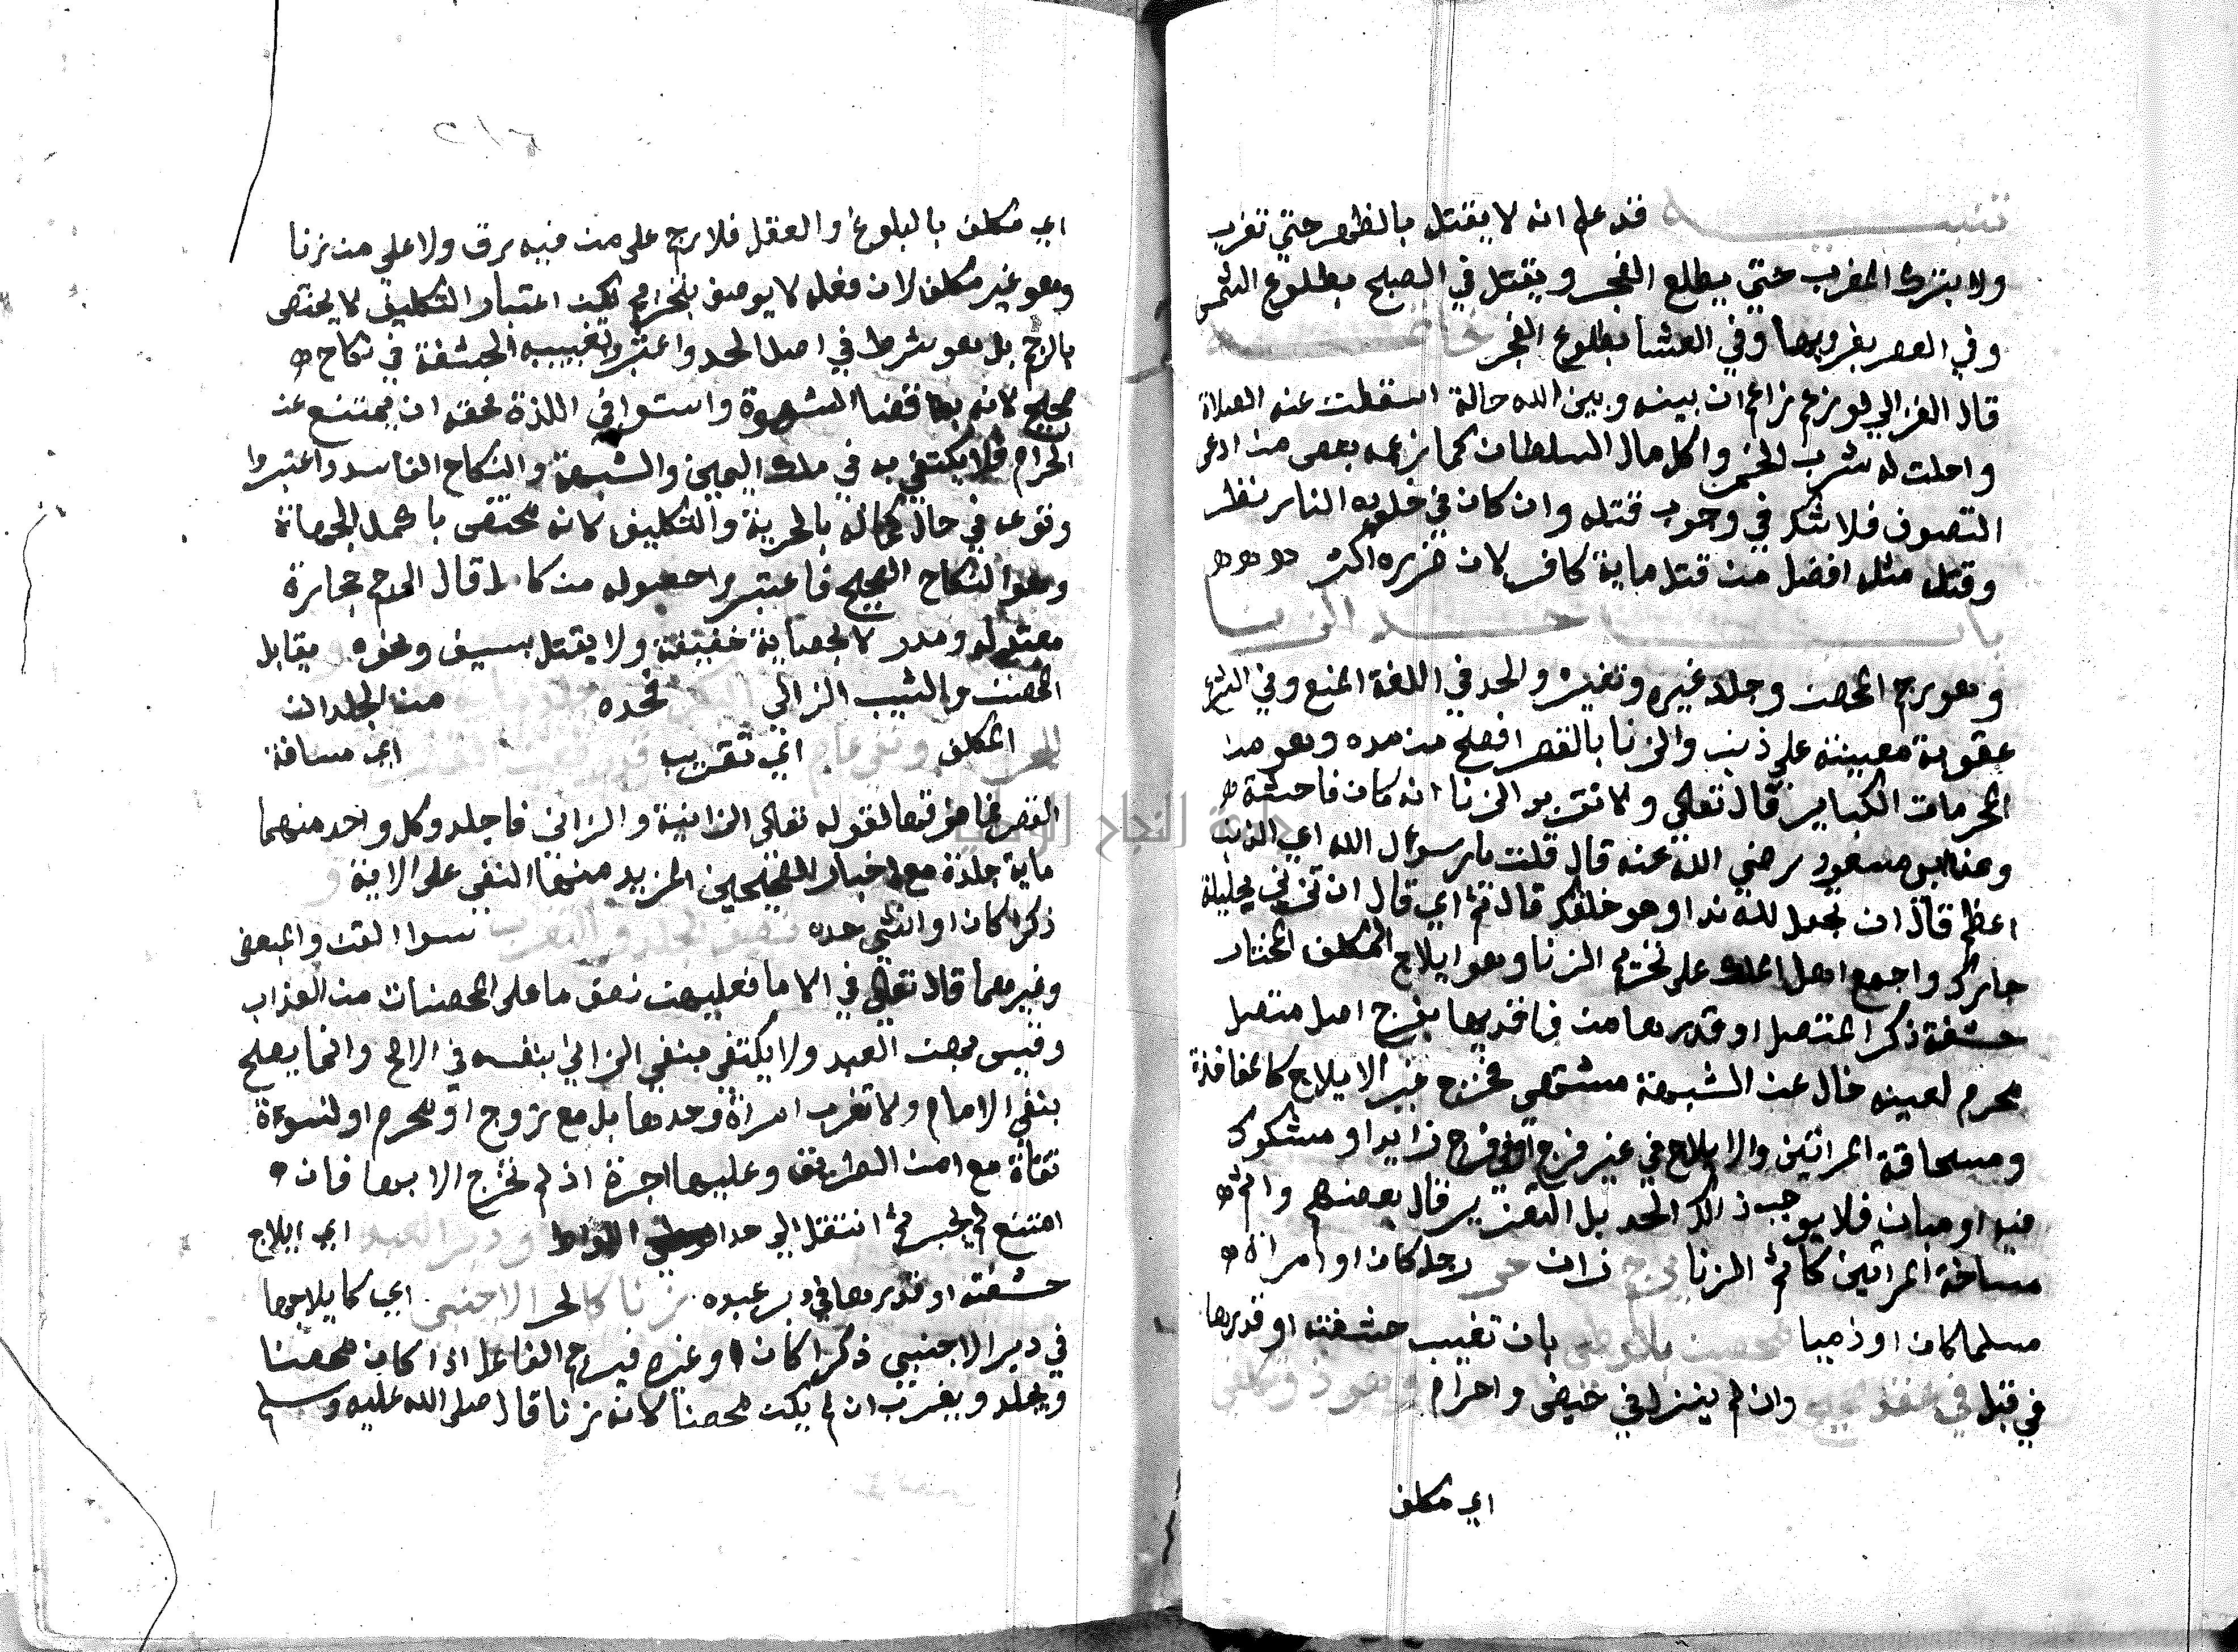 تنبيه قد علم انه لا يقتل بالظهر حتي تغرب
ولا بترك المغرب حتي يطلع الفجر ويقتل في الصبح بطلوع الشمس
وفي العصر بغروبها وفي العشا بطلوع الفجر خاتمة
قال الغزالي لو زعم زاعم ان بينه وبين الله حالة اسقطت عنه الصلاة
واحلت له شرب الخمر واكل مال السلطان كما زعمه بعض من ادعي
التصوف فلا شك في وجوب قتله وان كان في خلوده النار نظر
وقتل مثله افضل من قتل ماية كافر لان ضرره اكثر
باب حد الزنا
وهو رجم المحصن وجلد غيره وتغريبه والحد في اللغة المنع وفي الشرع
عقوبة معينة علي ذنب والزنا بالقصر افصح من مده وهو من
المحرمات الكباير قال تعالي ولا تقربو الزنا انه كان فاحشة
وعن ابن مسعود رضي الله عنه قال قلت يا رسول الله اي الذنب
اعظم قال ان تجعل لله ندا وهو خلقك قال ثم اي قال ان تزني بحليلة
جارك واجمع اهل الملل علي تحريم الزنا وهو ايلاج المكلف المختار
حشفة ذكر المتصل او قدرها من فاقدها بفرج اصل متصل
محرم لعينه خال عن الشبهة مشتهي فخرج غير الايلاج كالمفاخذة
ومساحقة المراتين والايلاج في غير فرج او في فرج زايد او مشكوك
فيه او مبان فلا يوجب ذالك الحد بل التعزير قال بعضهم واثم
مساحقة المراتين كاثم الزنا يرجم زان حر رجلا كان او امراة
مسلما كان او ذميا محصن بان وطي بان تغيب حشفته او قدرها
في قبل في عقد صحيح وان لم ينزل في حيض واحرام وهو ذو تكليف
اي مكلف
اي مكلف بالبلوغ والعقل فلا رجم علي من فيه رق ولا علي من زنا
وهو غير مكلف لان فعله لا يوصف بتحريم لكن اعتبار التكليف لا يختص
بالرجم بل هو شرط في اصل الحد واعتبر وتغييبه الحشفة في نكاح
صحيح لانه بها قضا الشهوة واستوافي اللذة فحقه ان يمتنع عن
الحرام فلا يكتفي به في ملك اليمين والشبهة والنكاح الفاسد واعتبروا
وقوعه في حال كماله بالحرية والتكليف لانه مختص باكمل الجهات
وهو النكاح الصحيح فاعتبر حصوله من كامل قال الرجم بحجارة
معتدلة ومدر لا بحصاية خفيفة ولا يقتل بسيف ونحوه ويقابل
المحصن والثيب الزاني فحده من الجلدات
للحر المكلف ونفي عام اي تغريب قدر مسافة القصر اي مسافة
القصر فما فوقها لقوله تعالي الزانية والزاني فاجلدو كل واحد منهما
ماية جلدة مع اخبار الصحيحين المزيد منها النفي علي الاية و
ذكرا كان او انثي حده نصف الجلد والتغريب سوا القن والمبعض
وغيرهما قال تعالي في الاما فعليهن نصف ما علي المحصنات من العذاب
وقيس بهن العبد ولا يكتفي بنفي الزاني بنفسه في الاصح وانما يصح
بنفي الامام ولا تغرب امراة وحدها بل مع زوج او محرم او نسوة
ثقاة مع امن الطريق وعليها اجرة اذ لم تخرج الا بها فان
امتنع لم يجبر ثم انتقل الي حد اللواط و دبر العبد اي ايلاج
حشفته او قدرها في دبر عبده زنا كالحر الاجنبي اي كايلاجها
في دبر الاجنبي ذكرا كان او غيره فيرجم الفاعل اذا كان محصنا
ويجلد ويغرب ان لم يكن محصنا لانه زنا قال صلي الله عليه وسلم